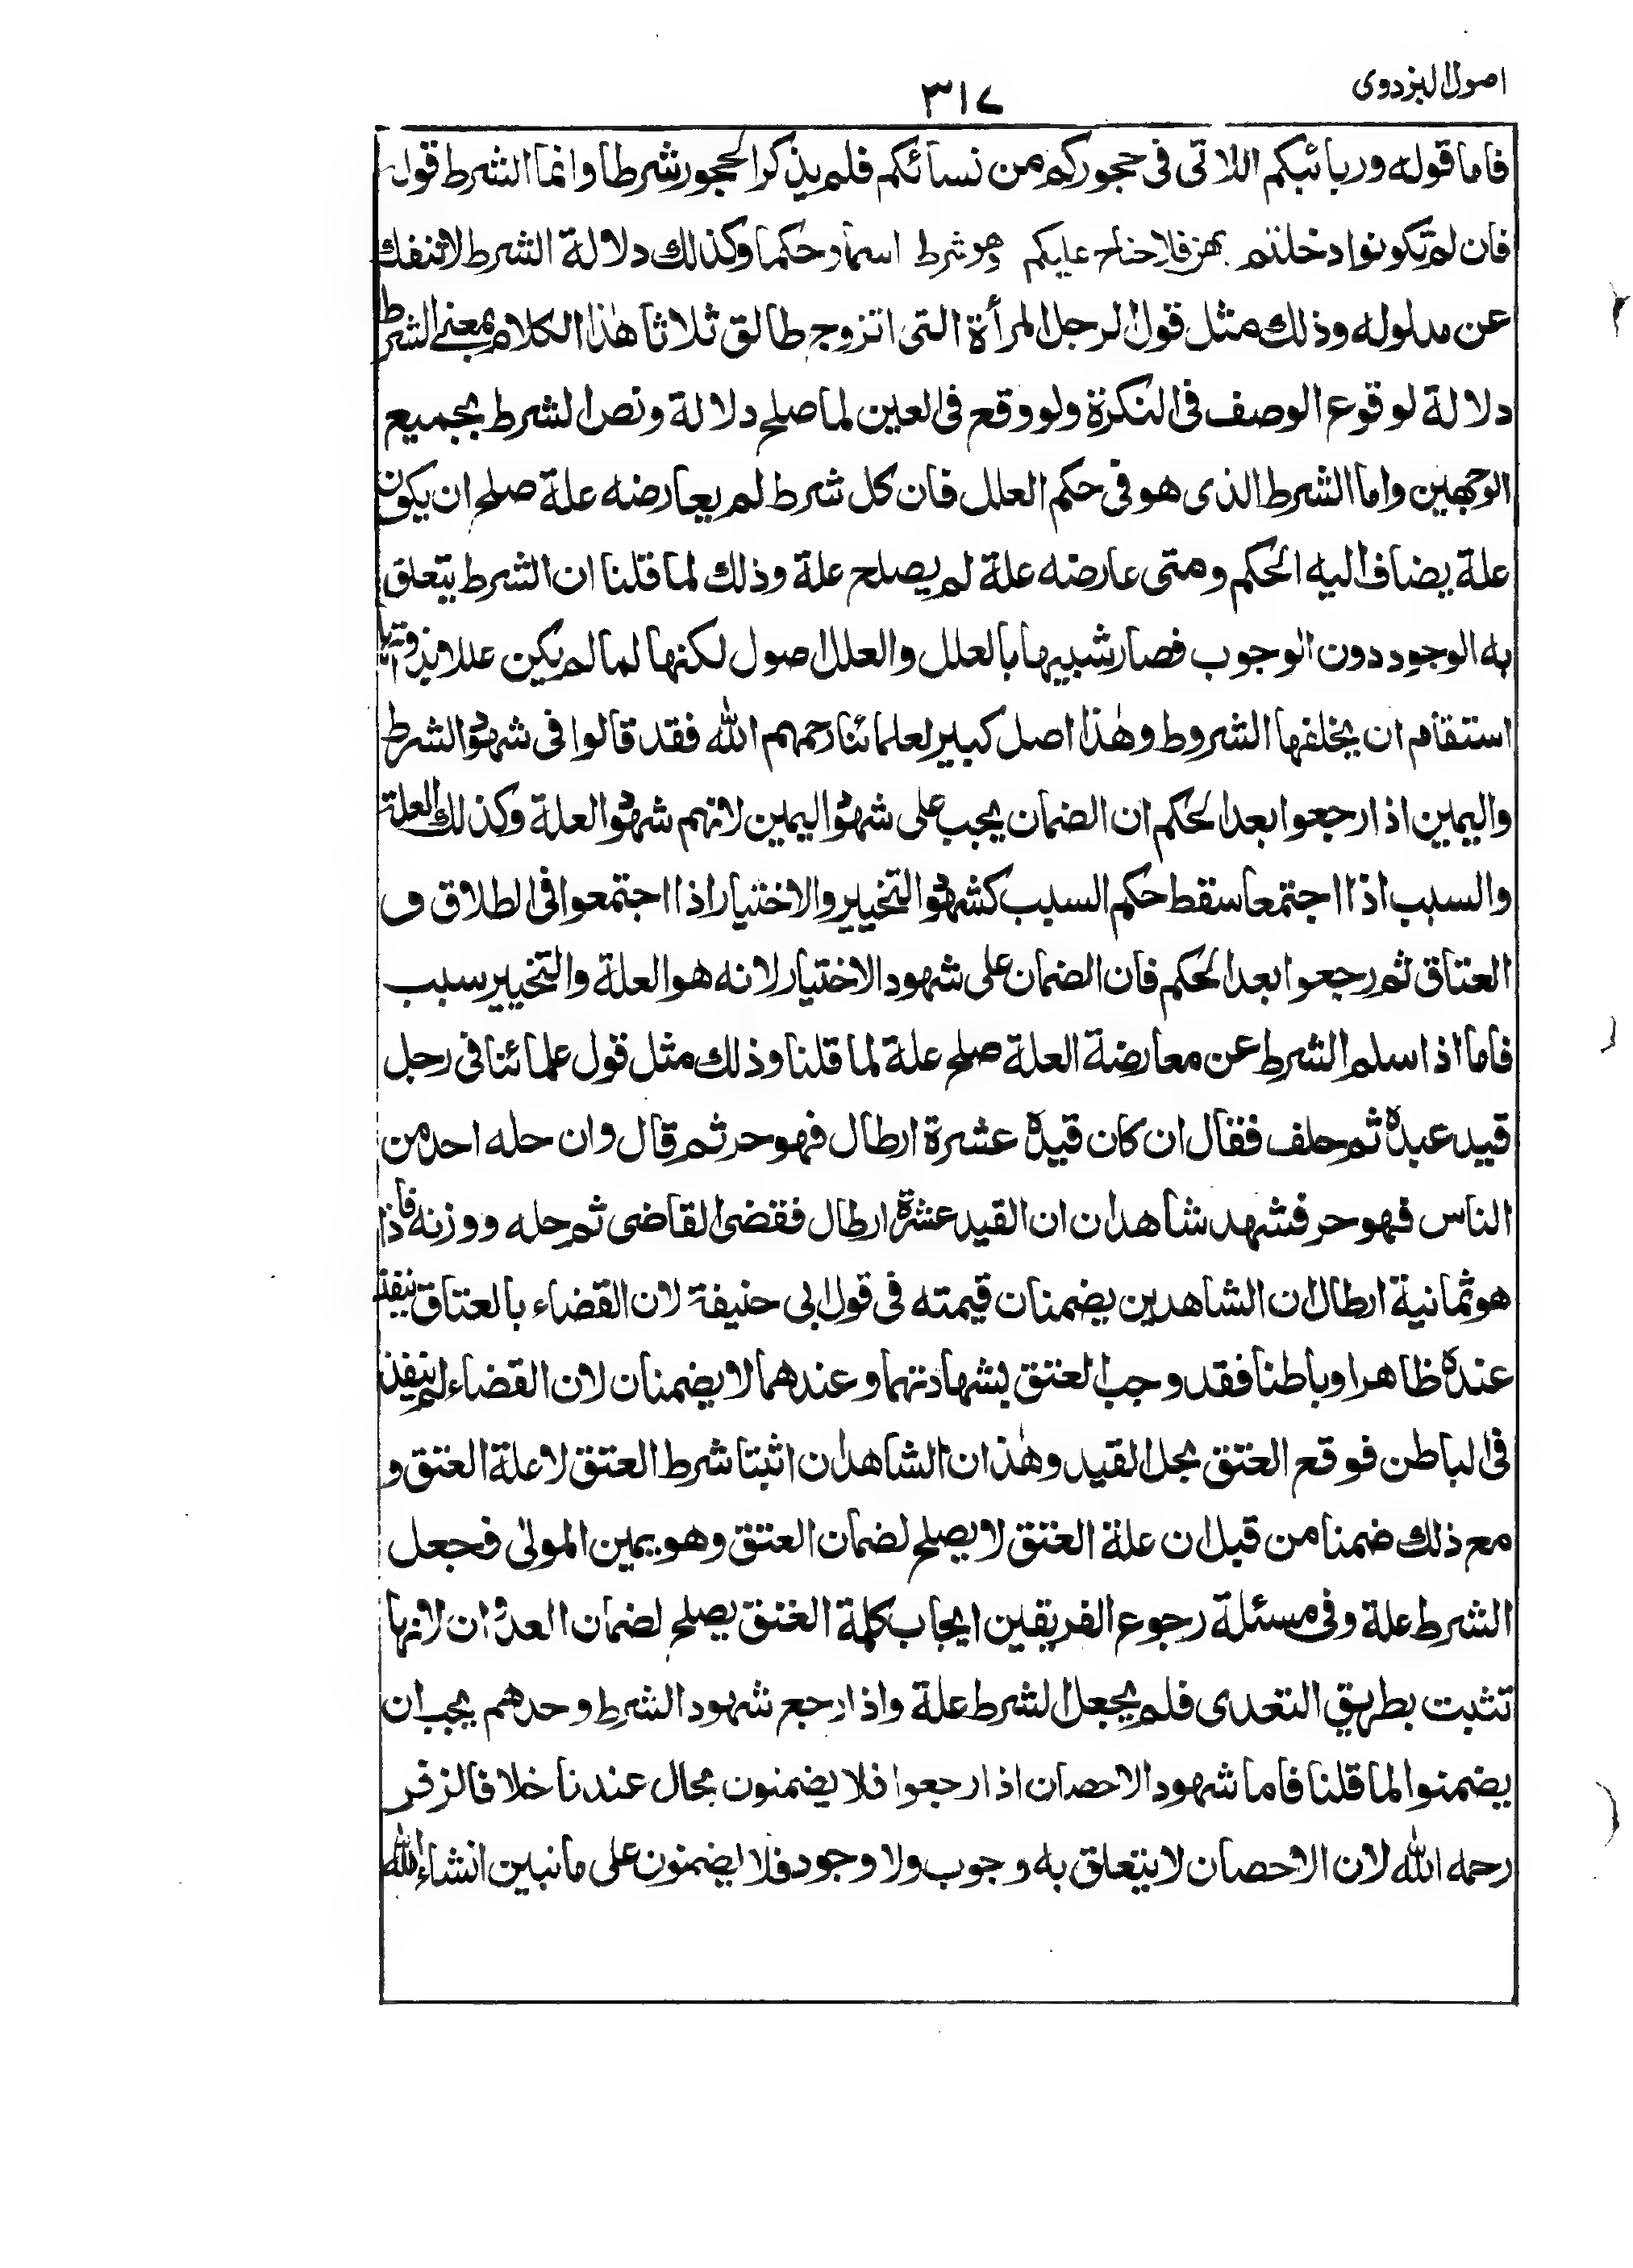 اصول البزدوى
٣١٧
فاما قوله وربائبكم اللاتى فى حجوركم من نسائكم فلم يذكر الحجور شرطا وانما الشرط قوله
فان لم تكونوا دخلتم بهن فلا جناح عليكم وهو شرط اسما وحكما وكذلك دلالة الشرط لا تنفك
عن مدلوله وذلك مثل قول الرجل المرأة التى اتزوج طالق ثلاثا هذا الكلام بمعنى الشرط
دلالة لوقوع الوصف فى النكرة ولو وقع فى العين لما صلح دلالة ونص الشرط بجميع
الوجهين واما الشرط الذى هو فى حكم العلل فان كل شرط لم يعارضه علة صلح ان يكون
علة يضاف اليه الحكم ومتى عارضه علة لم يصلح علة وذلك لما قلنا ان الشرط يتعلق
به الوجود دون الوجوب فصار شبيها بالعلل والعلل اصول لكنها لما لم يكن عللا بذواتها
استقام ان يخلفها الشروط وهٰذا اصل كبير لعلمائنا رحمهم الله فقد قالوا فى شهود الشرط
واليمين اذا رجعوا بعد الحكم ان الضمان يجب على شهود اليمين لانهم شهود العلة وكذلك العلة
والسبب اذا اجتمعا سقط حكم السبب كشهود التخيير والاختيار اذا اجتمعوا فى الطلاق و
العتاق ثم رجعوا بعد الحكم فان الضمان على شهود الاختيار لانه هو العلة والتخيير سبب
فاما اذا سلم الشرط عن معارضة العلة صلح علة لما قلنا وذلك مثل قول علمائنا فى رجل
قيد عبده ثم حلف فقال ان كان قيده عشرة ارطال فهو حر ثم قال وان حله احد من
الناس فهو حر فشهد شاهدان ان القيد عشرة ارطال فقضى القاضى ثم حله ووزنه فاذا
هو ثمانية ارطال ان الشاهدين يضمنان قيمته فى قول ابى حنيفة لان القضاء بالعتاق ينفذ
عنده ظاهرا وباطنا فقد وجب العتق بشهادتهما وعندهما لا يضمنان لان القضاء لم ينفذ
فى الباطن فوقع العتق بحل القيد وهٰذان الشاهدان اثبتا شرط العتق لا علة العتق و
مع ذلك ضمنا من قبل ان علة العتق لا يصلح لضمان العتق وهو يمين المولى فجعل
الشرط علة وفى مسئلة رجوع الفريقين ايجاب كلمة العتق يصلح لضمان العدوان لانها
تثبت بطريق التعدى فلم يجعل الشرط علة واذا رجع شهود الشرط وحدهم يجب ان
يضمنوا لما قلنا فاما شهود الاحصان اذا رجعوا فلا يضمنون بحال عندنا خلافا لزفر
رحمه الله لان الاحصان لا يتعلق به وجوب ولا وجود فلا يضمنون على ما نبين انشاء الله